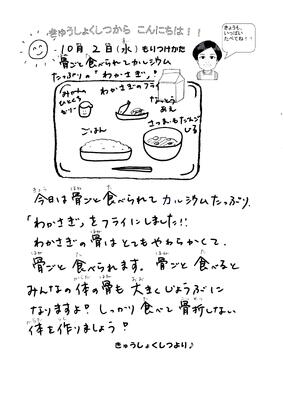 きゅうしょくしつから こんにちは!!
きょうも、
いっぱい
たべてね!!
10月2日(水) もりつけかた
骨ごと食べられてカルシウム
たっぷりの「わかさぎ」♪
わかさぎのフライ
みかん
ひとくち
ゼリー
なっとう
あえ
さつまいもだんご
じる
ごはん
今日は骨ごと食べられてカルシウムたっぷり、
「わかさぎ」をフライにしました!!
わかさぎの骨はとてもやわらかくて、
骨ごと食べられます。骨ごと食べると
みんなの体の骨も大きくじょうぶに
なりますよ♪しっかり食べて骨折しない
体を作りましょう♪
きゅうしょくしつより♪